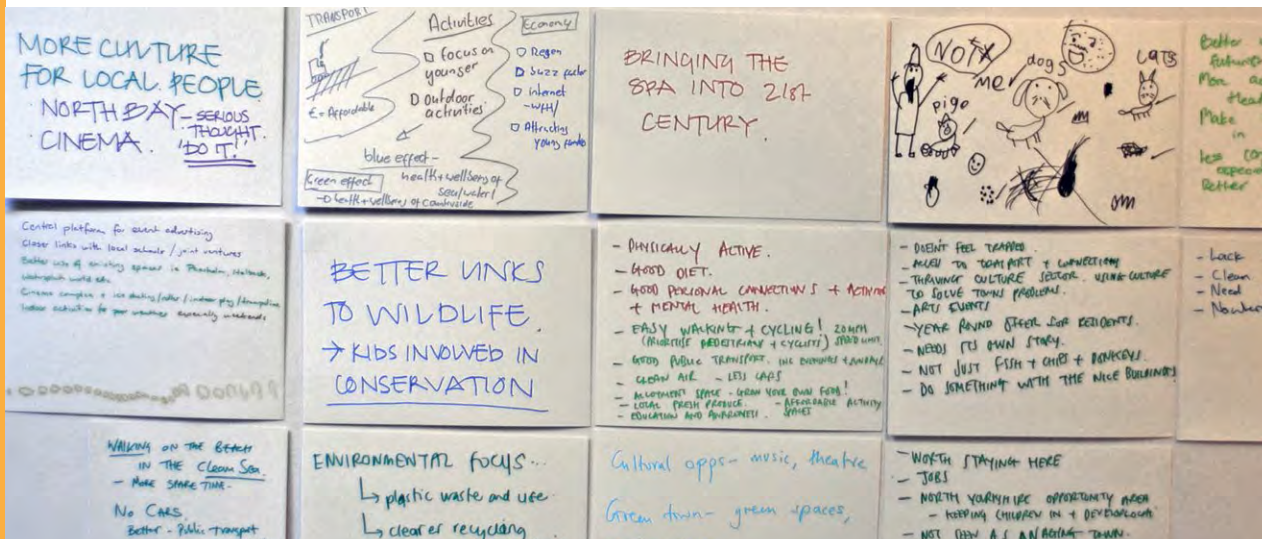 MORE CULTURE
FOR LOCAL PEOPLE
NORTH BAY - SERIOUS
THOUGHT.
CINEMA. 'DO IT!'
TRANSPORT
£ = Affordable
Activities
focus on
younger
outdoor
activities
Economy
Regen
buzz factor
internet
Attracting
young people
blue effect -
health + wellbeing of
sea/water/
Green effect
health + wellbeing of countryside
BRINGING THE
SPA INTO 21st
CENTURY.
ME
dogs
CATS
pigs
Better
Make
in
less
Better
Central platform for event advertising
Closer links with local schools / joint ventures
Better use of existing spaces in
BETTER LINKS
TO WILDLIFE.
→ KIDS INVOLVED IN
CONSERVATION
- PHYSICALLY ACTIVE.
- GOOD DIET.
- GOOD PERSONAL CONNECTIONS + ACTIVITIES
+ MENTAL HEALTH.
- EASY WALKING + CYCLING! 20MPH
(PRIORITISE PEDESTRIANS + CYCLISTS) SPEED LIMIT
- GOOD PUBLIC TRANSPORT. INC EVENINGS + SUNDAYS
- CLEAN AIR - LESS CARS
- ALLOTMENT SPACE - GROW YOUR OWN FOOD!
- LOCAL FRESH PRODUCE. - AFFORDABLE ACTIVITY
- EDUCATION AND AWARENESS. SPACES
- DOESN'T FEEL TRAPPED.
- ACCESS TO TRANSPORT + CONNECTIONS
- THRIVING CULTURE SECTOR. USING CULTURE
TO SOLVE TOWNS PROBLEMS.
- ARTS EVENTS
- YEAR ROUND OFFER FOR RESIDENTS.
- NEEDS ITS OWN STORY.
- NOT JUST FISH + CHIPS + DONKEYS.
- DO SOMETHING WITH THE NICE BUILDINGS
- Lack
- Clean
- Need
WALKING ON THE BEACH
IN THE Clean Sea.
- MORE SPARE TIME.
No CARS.
Better - Public Transport
ENVIRONMENTAL FOCUS...
↳ plastic waste and use
↳ clearer recycling
Cultural opps - music, theatre
Green town - green spaces,
- WORTH STAYING HERE
- JOBS
- NORTH YORKSHIRE OPPORTUNITY AREA
- KEEPING CHILDREN IN +
- NOT SEEN AS AN AGING TOWN.